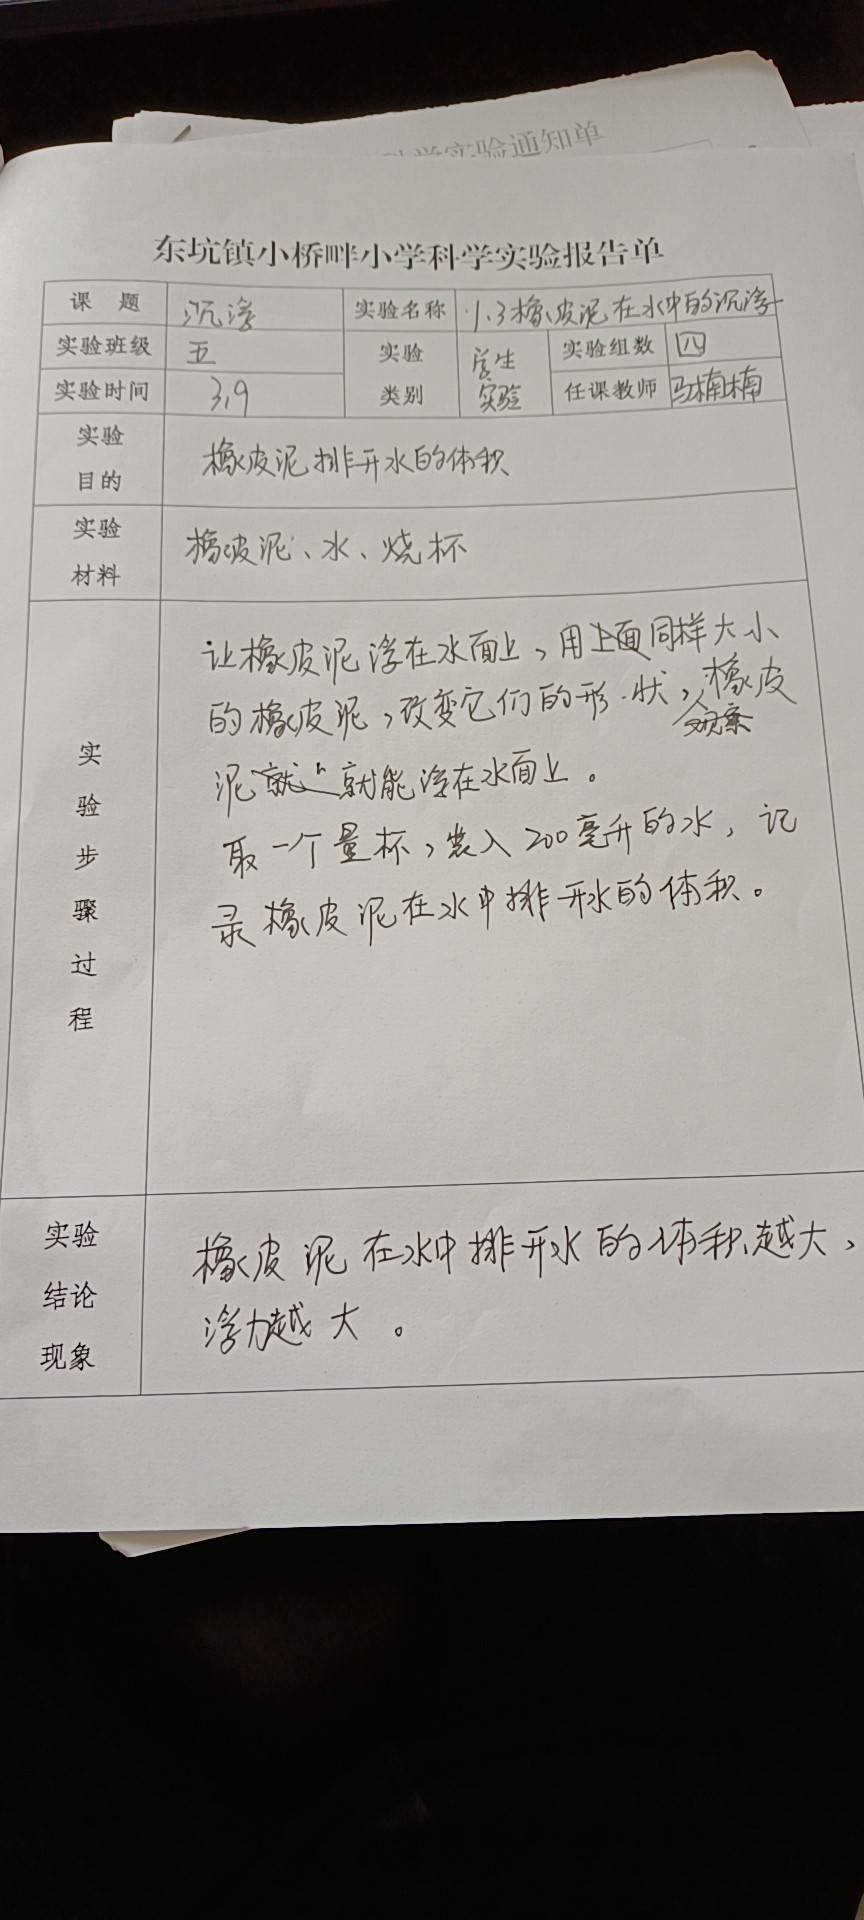 科学实验通知单
东坑镇小桥畔小学科学实验报告单
课 题 沉浮 实验名称 1.3橡皮泥在水中的沉浮
实验班级 五 实验类别 学生实验 实验组数 四
实验时间 3.9 任课教师 马楠楠
实验目的 橡皮泥排开水的体积
实验材料 橡皮泥、水、烧杯
实验步骤过程
让橡皮泥浮在水面上,用上面同样大小
的橡皮泥,改变它们的形状,观察橡皮
泥就 就能浮在水面上。
取一个量杯,装入200毫升的水,记
录橡皮泥在水中排开水的体积。
实验结论现象
橡皮泥在水中排开水的体积越大,
浮力越大。